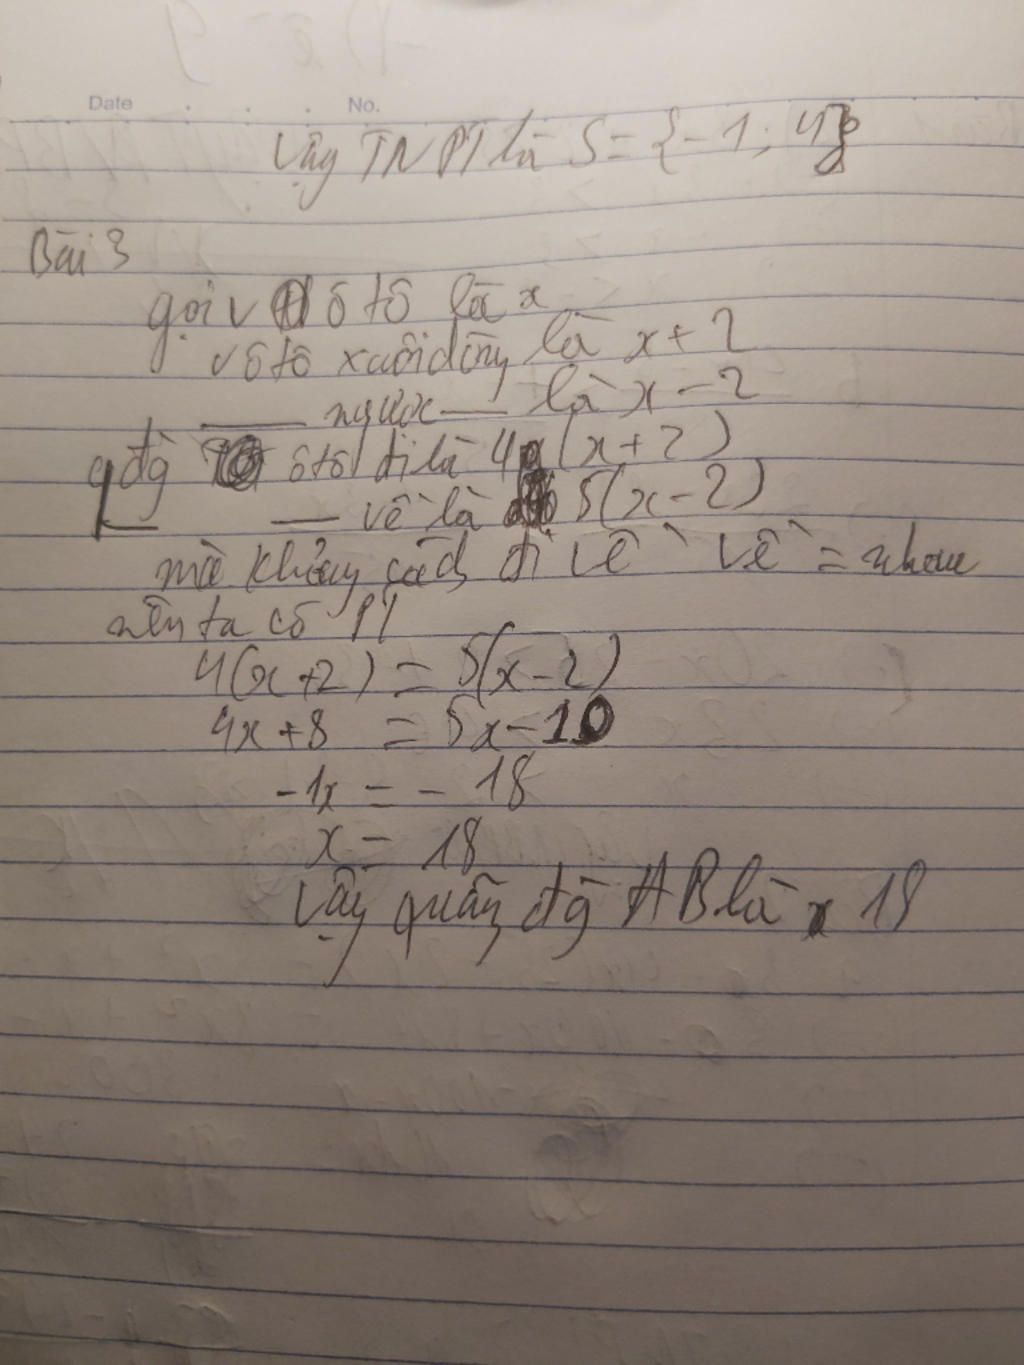 Date No.
Vậy TNPT là S = {-1; 4}
Bài 3
gọi v ô tô là x
v ô tô xuôi dòng là x + 2
ngược là x - 2
qđg ô tô đi là 4 (x+2)
về là 5(x-2)
mà khoảng cách đi về về = nhau
nên ta có PT
4(x+2) = 5(x-2)
4x+8 = 5x-10
-1x = - 18
x = 18
Vậy quãng đg AB là 18